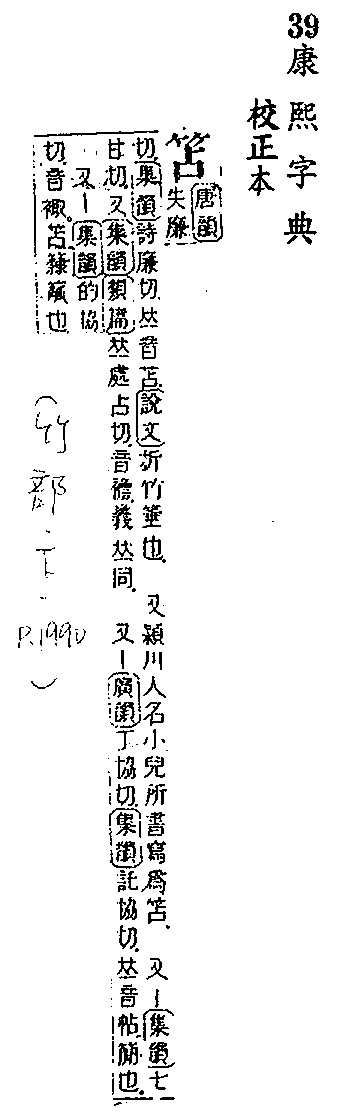 39 康熙字典
校正本
笘
唐韻
失廉
切集韻詩廉切𠀤音苫說文折竹箠也 又潁川人名小兒所書寫爲笘 又｜集韻七
甘切又集韻類篇𠀤處占切音襜義𠀤同 又｜廣韻丁協切集韻託協切𠀤音帖簡也
又｜集韻的協
切音 笘 也
(竹部· · P.1990)